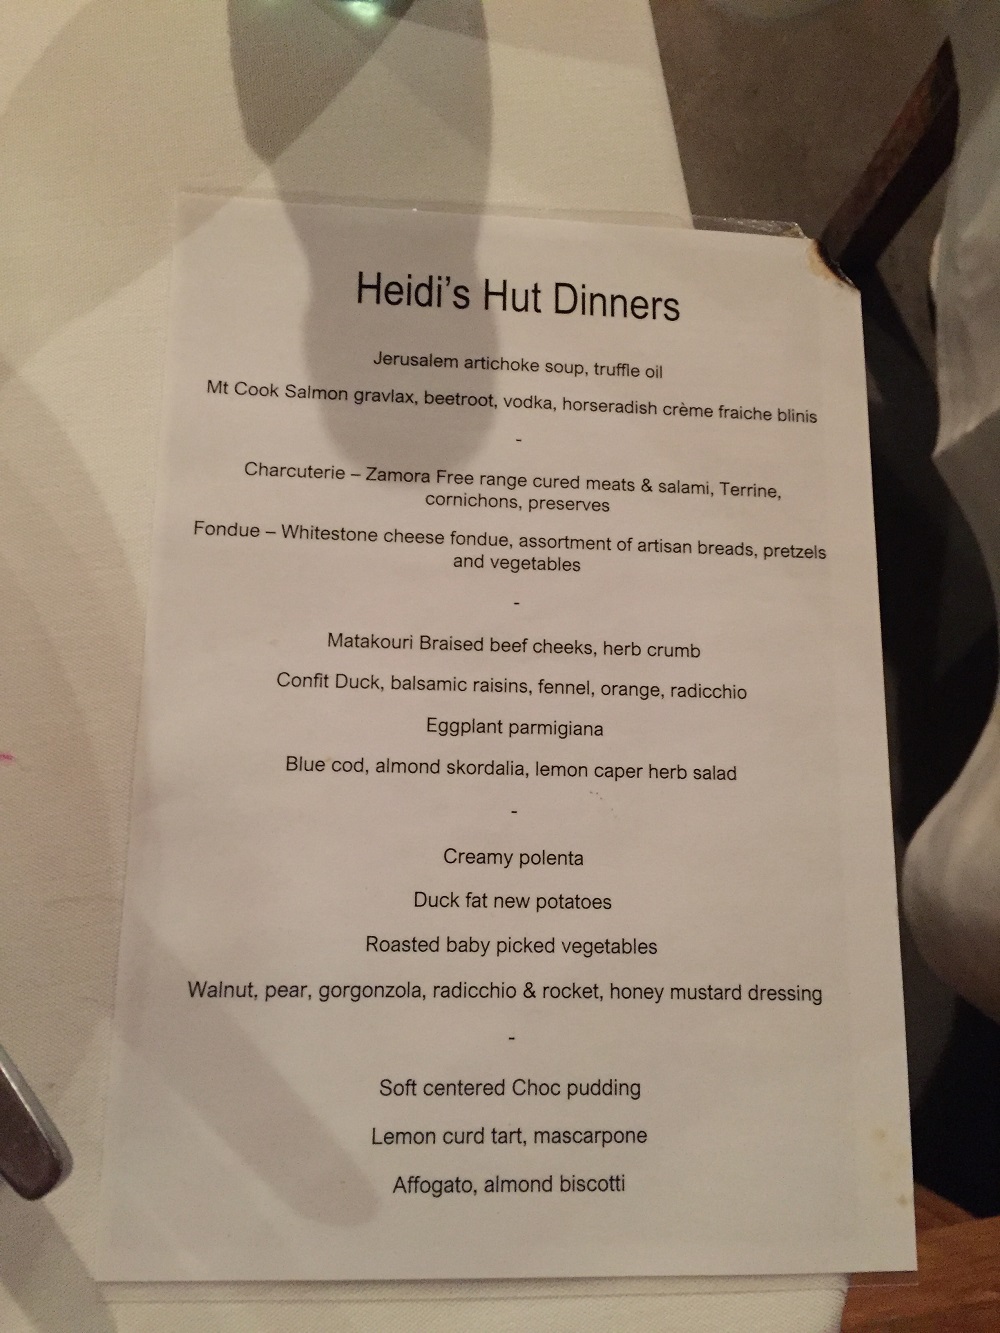 Heidi's Hut Dinners
Jerusalem artichoke soup, truffle oil
Mt Cook Salmon gravlax, beetroot, vodka, horseradish crème fraiche blinis
-
Charcuterie – Zamora Free range cured meats & salami, Terrine,
cornichons, preserves
Fondue – Whitestone cheese fondue, assortment of artisan breads, pretzels
and vegetables
-
Matakouri Braised beef cheeks, herb crumb
Confit Duck, balsamic raisins, fennel, orange, radicchio
Eggplant parmigiana
Blue cod, almond skordalia, lemon caper herb salad
-
Creamy polenta
Duck fat new potatoes
Roasted baby picked vegetables
Walnut, pear, gorgonzola, radicchio & rocket, honey mustard dressing
-
Soft centered Choc pudding
Lemon curd tart, mascarpone
Affogato, almond biscotti